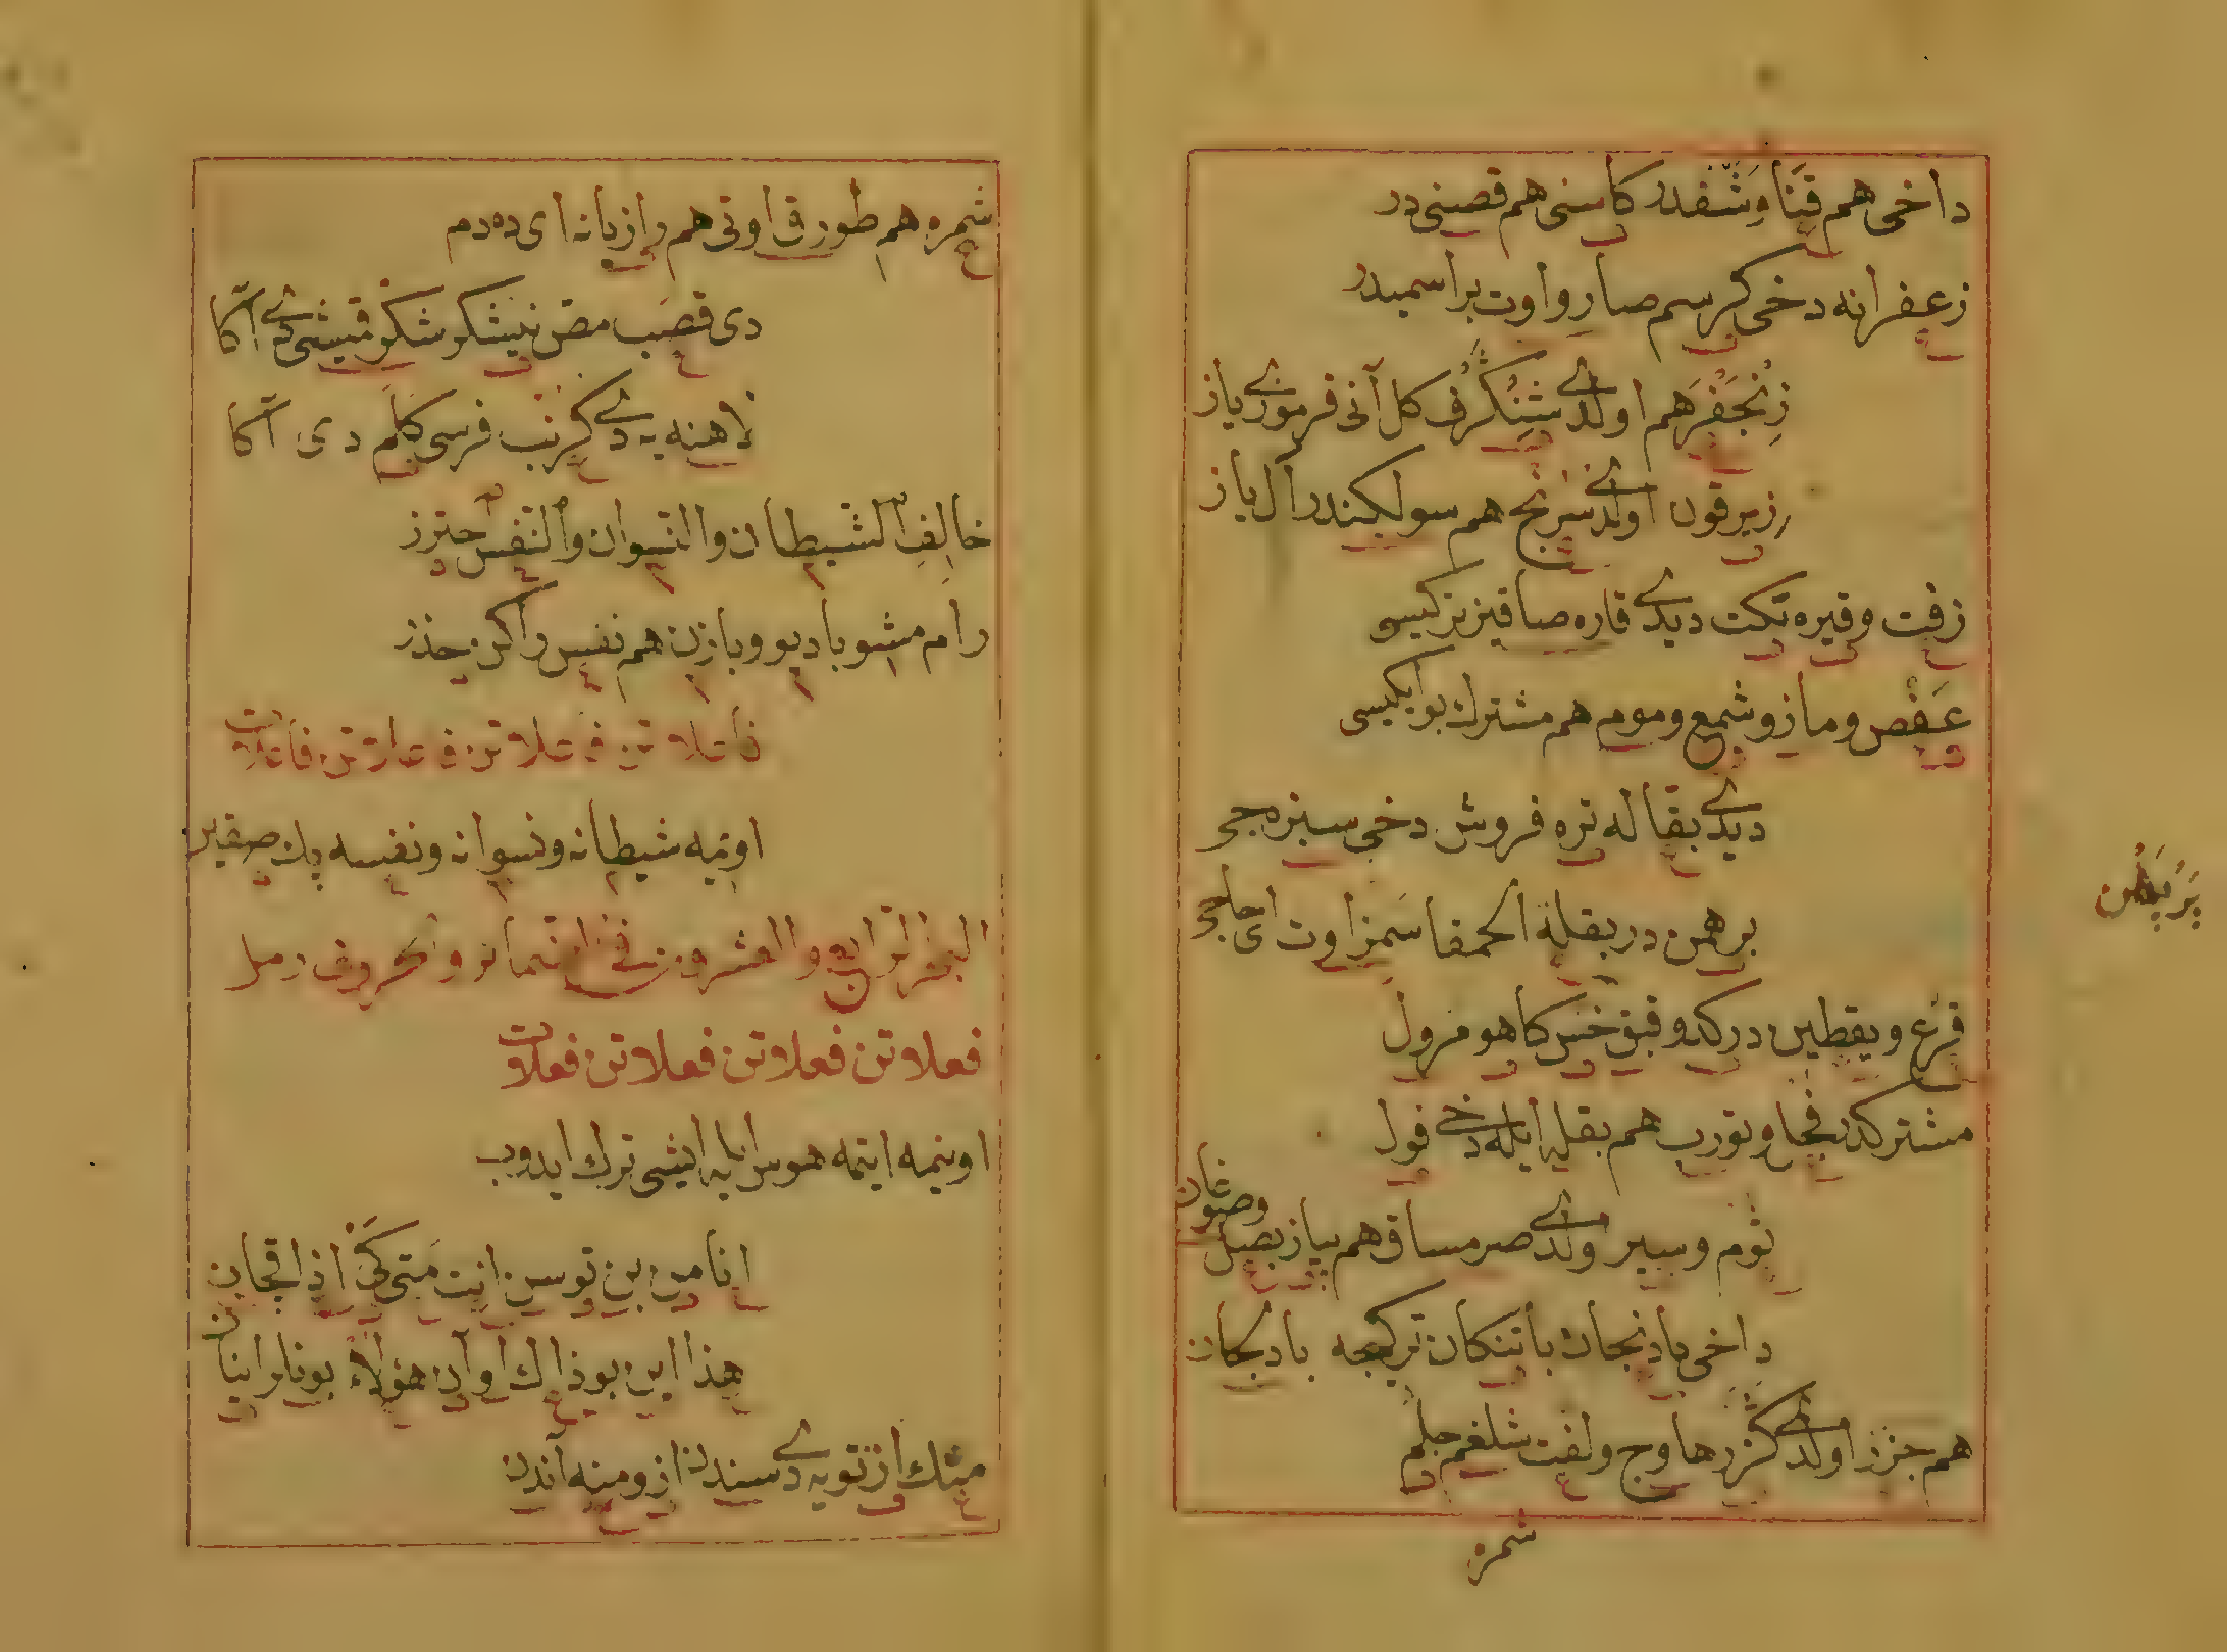 داخی هم قنا وشفدر کاسنی هم قصنی در
زعفرانه دخی کرسم صارو اوت براسمیدر
زنجفر هم اولدی شنکرف کل آنی قرموزی یاز
زیرقون اولدی سرنج هم سولکندر آل یاز
زفت وقیره تکت دیدی قاره صاقیز بزکیسی
عفص ومازو شمع وموم هم مشترك بوایکیسی
دیدی بقاله تره فروش دخی سبزه جی
برهمن در بقلة الحمقا سمز اوت ای
قرع ویقطین در کدو قبق خس کاهو مرول
مشترکدر فجل وتورب هم بقله ایله دخی فول
ثوم وسیر اولدی صرمساق هم پیاز بصل وصوغان
داخی بادنجان باتنکان ترکیجه بادلجان
هم جزر اولدی کزر هاوج ولفت شلغم جلم
شمره
شمره هم طورق اوتی هم رازیانه ای ده دم
دی قصب مص نیشکر شکر قمیشی دی آکا
لاهنه یه دی کرنب فرسی کلم دی آکا
خالف الشیطان والنسوان والنفس احترز
رام مشو بادیو وبازن هم نفس را کن حذر
فاعلاتن فاعلاتن فاعلاتن فاعلات
اویمه شیطانه ونسوانه ونفسه پك صقین
البحر الرابع والعشرون فی الضمائر والحروف رمل
فعلاتن فعلاتن فعلاتن فعلات
اویمه ایتمه هوس ایله ایشی ترك ایدوب
انا من بن تو سن انت متی کی اذا قچان
هذا این بو ذاك اوان هؤلاء بونلر اینان
منك از تو یه دی سندن از ومنه آندن